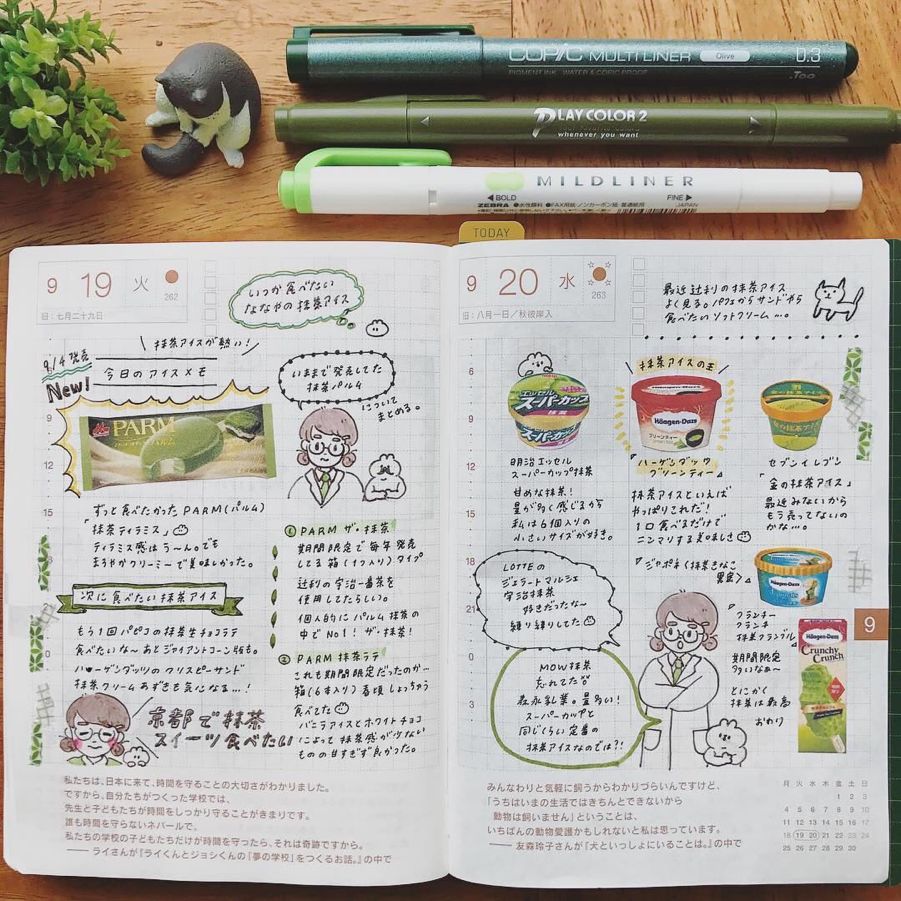 COPIC MULTILINER Olive 0.3
PIGMENT INK WATER & COPIC PROOF .Too
PLAY COLOR 2
whenever you want
MILDLINER
◀BOLD FINE▶
ZEBRA ●水性顔料 JAPAN
TODAY
9 19 火
262
旧:七月二十九日
いつか食べたい
ななやの抹茶アイス
抹茶アイスが熱い!
9/4発売
New!
今日のアイスメモ
いままで発売してた
抹茶パルム
について
まとめる。
PARM
ずっと食べたかったPARM(パルム)
「抹茶ティラミス」
ティラミス感はう〜んでも
まろやかクリーミーで美味しかった。
次に食べたい抹茶アイス
もう1回パピコの抹茶生チョコラテ
食べたいな〜あとジャイアントコーン版も。
ハーゲンダッツのクリスピーサンド
抹茶クリームあずきも気になる…!
京都で抹茶
スイーツ食べたい
① PARM ザ・抹茶
期間限定で毎年発売
してる箱(1つ入り)タイプ
辻利の宇治一番茶を
使用してたらしい。
個人的にパルム抹茶の
中でNo1! ザ・抹茶!
② PARM 抹茶ラテ
これも期間限定だったのか…
箱(6本入り)春頃しょっちゅう
食べてた
バニラアイスとホワイトチョコ
によって抹茶感が少ない
ものの甘すぎず良かった。
私たちは、日本に来て、時間を守ることの大切さがわかりました。
ですから、自分たちがつくった学校では、
先生と子どもたちが時間をしっかり守ることがきまりです。
誰も時間を守らないネパールで、
私たちの学校の子どもたちだけが時間を守ったら、それは奇跡ですから。
── ライさんが『ライくんとジョシくんの『夢の学校』をつくるお話。』の中で
9 20 水
263
旧:八月一日/秋彼岸入
最近辻利の抹茶アイス
よく見る。パフェからサンドやら
食べたいソフトクリーム…。
エッセル
スーパーカップ
明治エッセル
スーパーカップ抹茶
甘めな抹茶!
量が多く感じるから
私は6個入りの
小さいサイズが好き。
抹茶アイスの王
Häagen-Dazs
グリーンティー
「ハーゲンダッツ
グリーンティー」
抹茶アイスといえば
やっぱりこれだ!
1口食べるだけで
ニンマリする美味しさ
セブンイレブン
「金の抹茶アイス」
最近みないから
もう売ってないの
かな…。
LOTTEの
ジェラートマルシェ
宇治抹茶
好きだったな〜
練り練りしてた
「ジャポネ〈抹茶きなこ
黒蜜〉」
Häagen-Dazs
「クランチー
クランチ
抹茶クランブル」
期間限定
多いなぁ〜
とにかく
抹茶は最高
おわり
Häagen-Dazs
Crunchy
Crunch
MOW抹茶
忘れてた
森永乳業。量多い!
スーパーカップと
同じくらい定番の
抹茶アイスなのでは?!
6
9
12
15
18
21
0
3
9
みんなわりと気軽に飼うからわかりづらいんですけど、
「うちはいまの生活ではきちんとできないから
動物は飼いません」ということは、
いちばんの動物愛護かもしれないと私は思っています。
── 友森玲子さんが『犬といっしょにいることは。』の中で
月 火 水 木 金 土 日
1 2 3
4 5 6 7 8 9 10
11 12 13 14 15 16 17
18 19 20 21 22 23 24
25 26 27 28 29 30